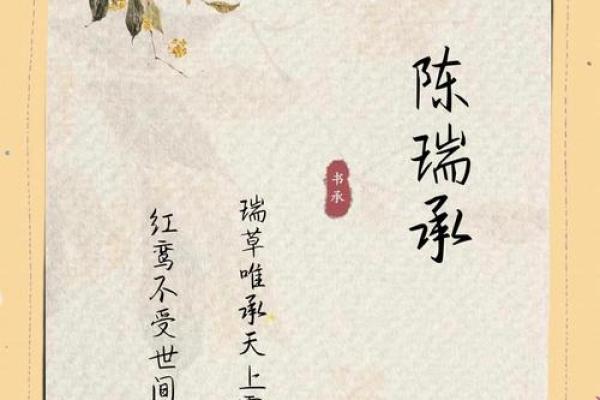 陈瑞承
书承
瑞草唯承天上
红鸾不受世间